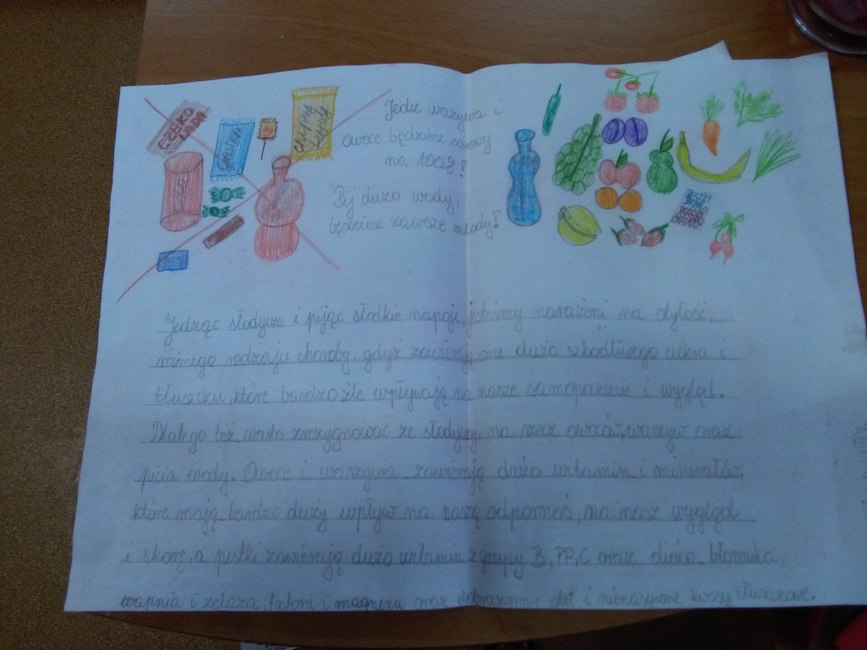 CZEKO
LADA
chipsy
Jedz warzywa i
owoce będziesz zdrowy
na 100%!
Pij dużo wody,
będziesz zawsze młody!
Jedząc słodycze i pijąc słodkie napoje, jesteśmy narażeni na otyłość,
różnego rodzaju choroby, gdyż zawierają one dużo szkodliwego cukru i
tłuszczu, które bardzo źle wpływają na nasze samopoczucie i wygląd.
Dlatego też warto zrezygnować ze słodyczy na rzecz owoców, warzyw oraz
picia wody. Owoce i warzywa zawierają dużo witamin i minerałów,
które mają bardzo duży wpływ na naszą odporność, na nasz wygląd
i skórę, a pestki zawierają dużo witamin z grupy B, PP, C oraz dużo błonnika,
wapnia i żelaza, fosforu i magnezu oraz i nienasycone kwasy tłuszczowe.